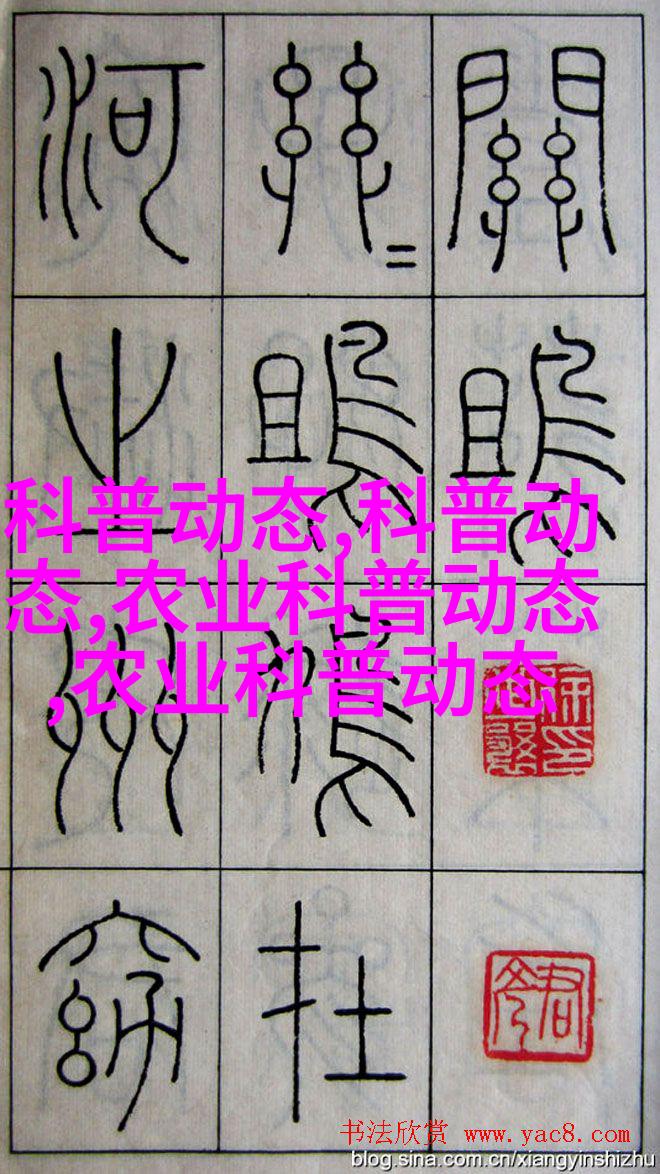 關鴡
絲=鴡鳩在
河之州窈
科普动态,科普动
态,农业科普动态
,农业科普动态
书法欣赏 www.yac8.com
blog.sina.com.cn/xiangyinshizhu